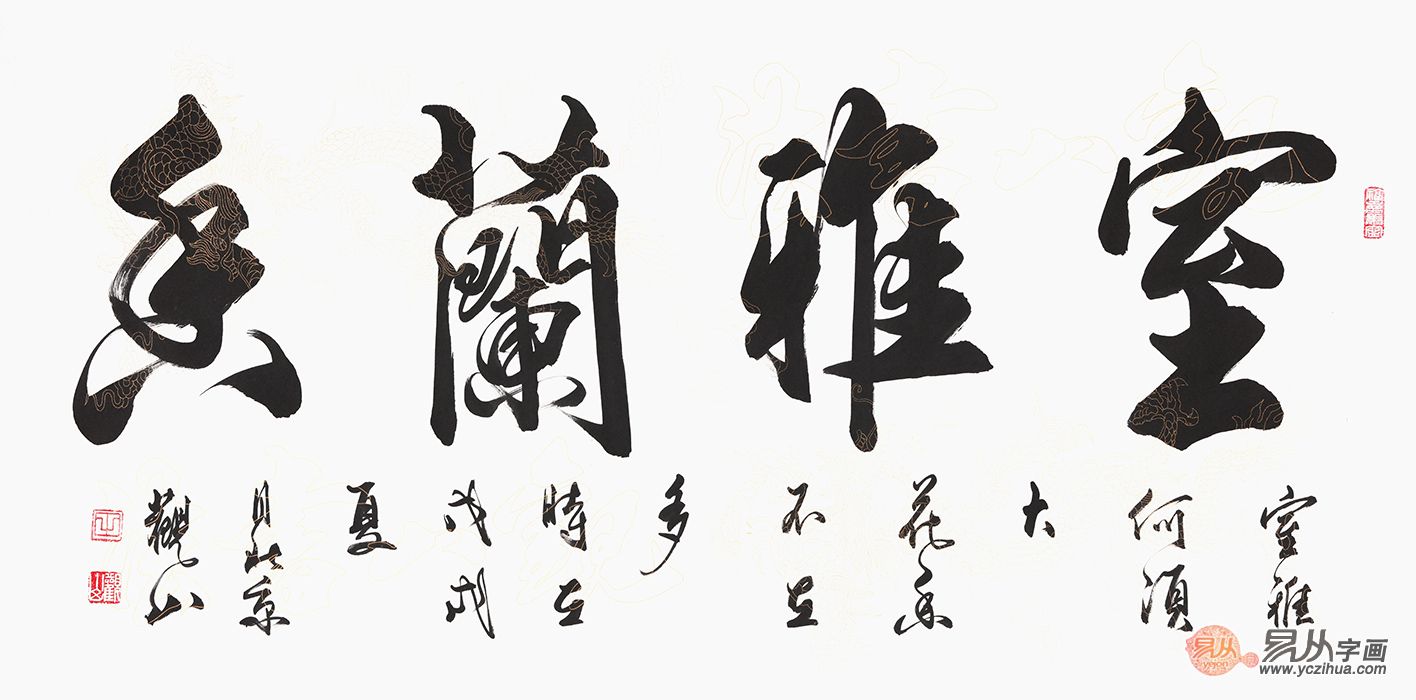 室雅蘭香
室雅
何須
大
花香
不在
多
時在
戊戌
夏
月北京
觀山
易从
yejon
易从字画
www.yczihua.com